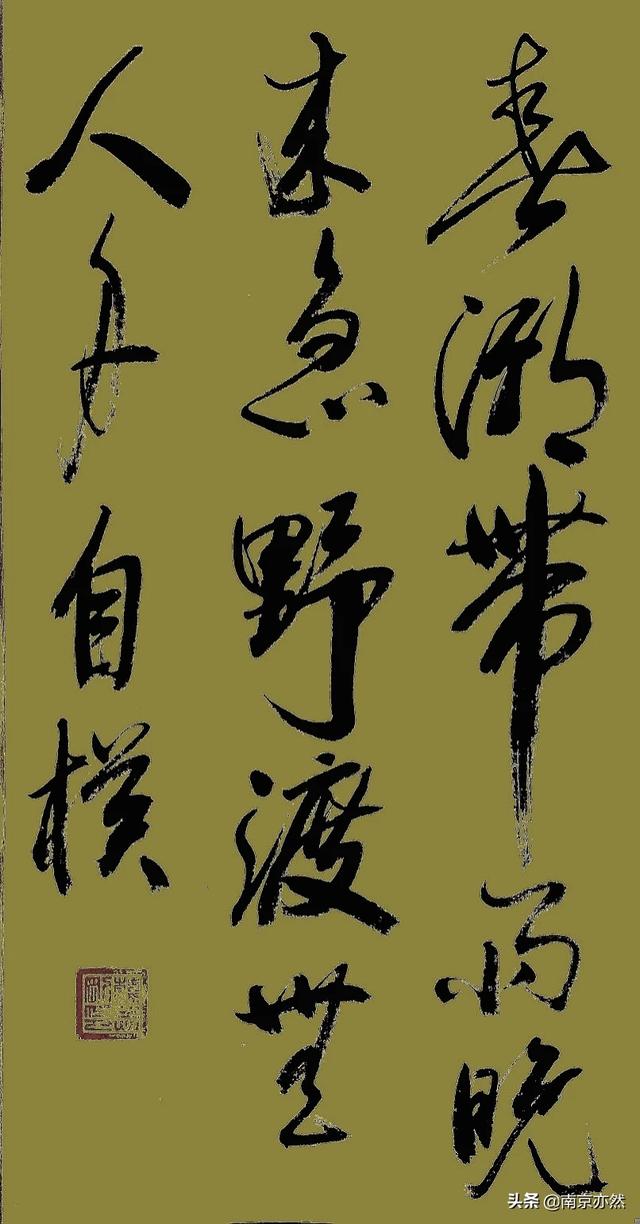 春潮带雨晚
来急野渡無
人舟自横
头条 @南京亦然